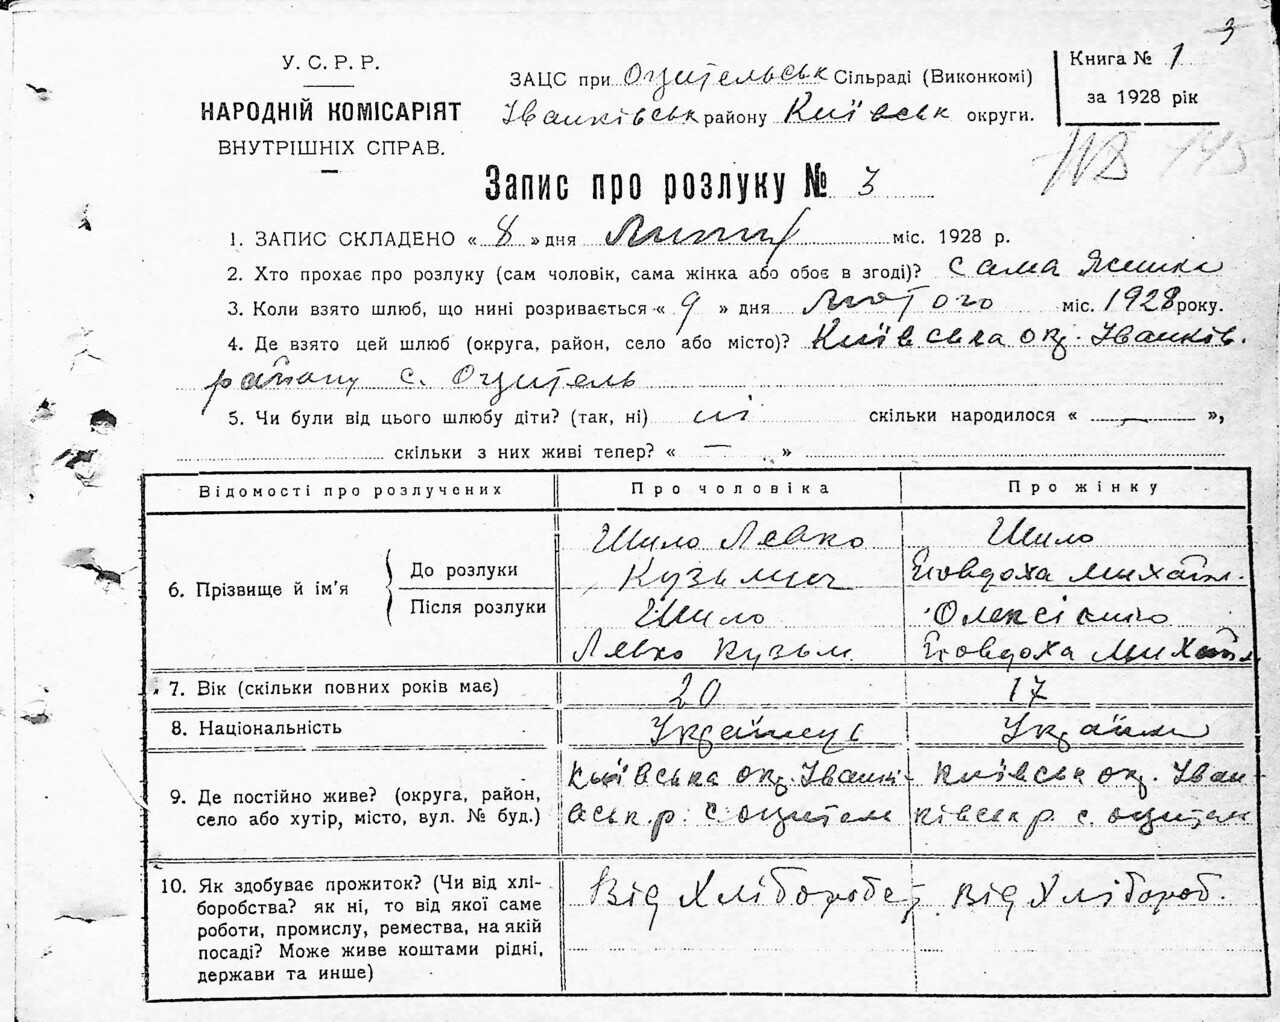 3
У. С. Р. Р.
НАРОДНІЙ КОМІСАРІЯТ
ВНУТРІШНІХ СПРАВ.
ЗАЦС при Оцительськ Сільраді (Виконкомі)
Іванківськ району Київськ округи.
Книга № 1
за 1928 рік
145
Запис про розлуку № 3
1. ЗАПИС СКЛАДЕНО « 8 » дня Липня міс. 1928 р.
2. Хто прохає про розлуку (сам чоловік, сама жінка або обоє в згоді)? сама жінка
3. Коли взято шлюб, що нині розривається « 9 » дня лютого міс. 1928 року.
4. Де взято цей шлюб (округа, район, село або місто)? Київська окр. Іванків.
району с. Оцитель
5. Чи були від цього шлюбу діти? (так, ні) ні скільки народилося « — »,
скільки з них живі тепер? « — »
Відомості про розлучених Про чоловіка Про жінку
6. Прізвище й ім'я
До розлуки
Шило Левко
Кузьмич
Шило
Явдоха Михайл.
Після розлуки
Шило
Левко Кузьм.
Олексієнко
Явдоха Михайл
7. Вік (скільки повних років має) 20 17
8. Національність Українець Українк
9. Де постійно живе? (округа, район,
село або хутір, місто, вул. № буд.)
Київська окр. Іванкі-
вськ р. с оцител
Київська окр. Іван-
ківськ р. с. оцител
10. Як здобуває прожиток? (Чи від хлі-
боробства? як ні, то від якої саме
роботи, промислу, ремества, на якій
посаді? Може живе коштами рідні,
держави та инше)
Від Хліборобст
Від Хлібороб.